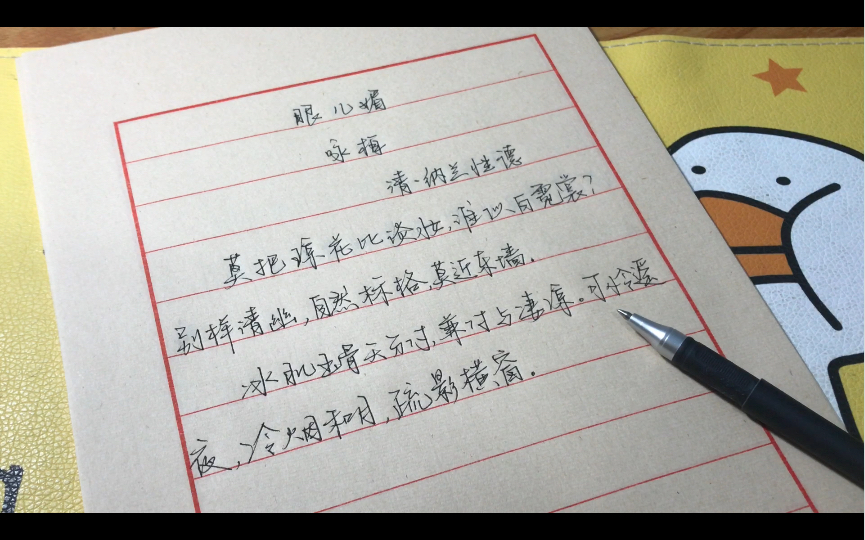 眼儿媚
咏梅
清·纳兰性德
莫把琼花比淡妆,谁似白霓裳?
别样清幽,自然标格,莫近东墙。
冰肌玉骨天分付,兼付与凄凉。可怜遥
夜,冷烟和月,疏影横窗。